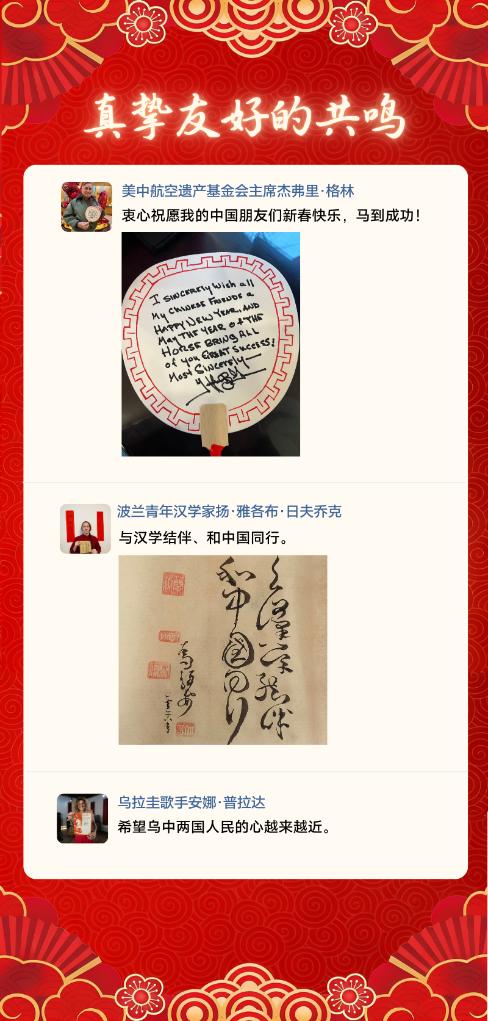 真挚友好的共鸣
美中航空遗产基金会主席杰弗里·格林
衷心祝愿我的中国朋友们新春快乐，马到成功！
I SINCERELY Wish all
My CHINESE FRIENDS A
HAPPY NEW YEAR, AND
May THE YEAR OF THE
HORSE BRING ALL
of you GREAT SUCCESS!
Most Sincerely
波兰青年汉学家扬·雅各布·日夫乔克
与汉学结伴、和中国同行。
与汉学结伴
和中国同行
乌拉圭歌手安娜·普拉达
希望乌中两国人民的心越来越近。